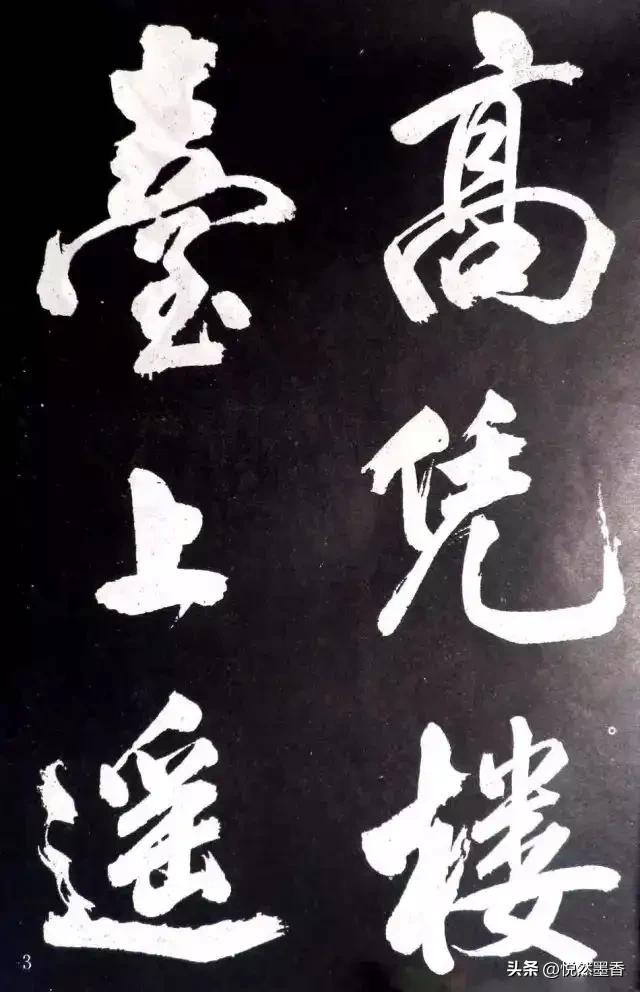 高凭楼
臺上遥
3
头条@悦然墨香